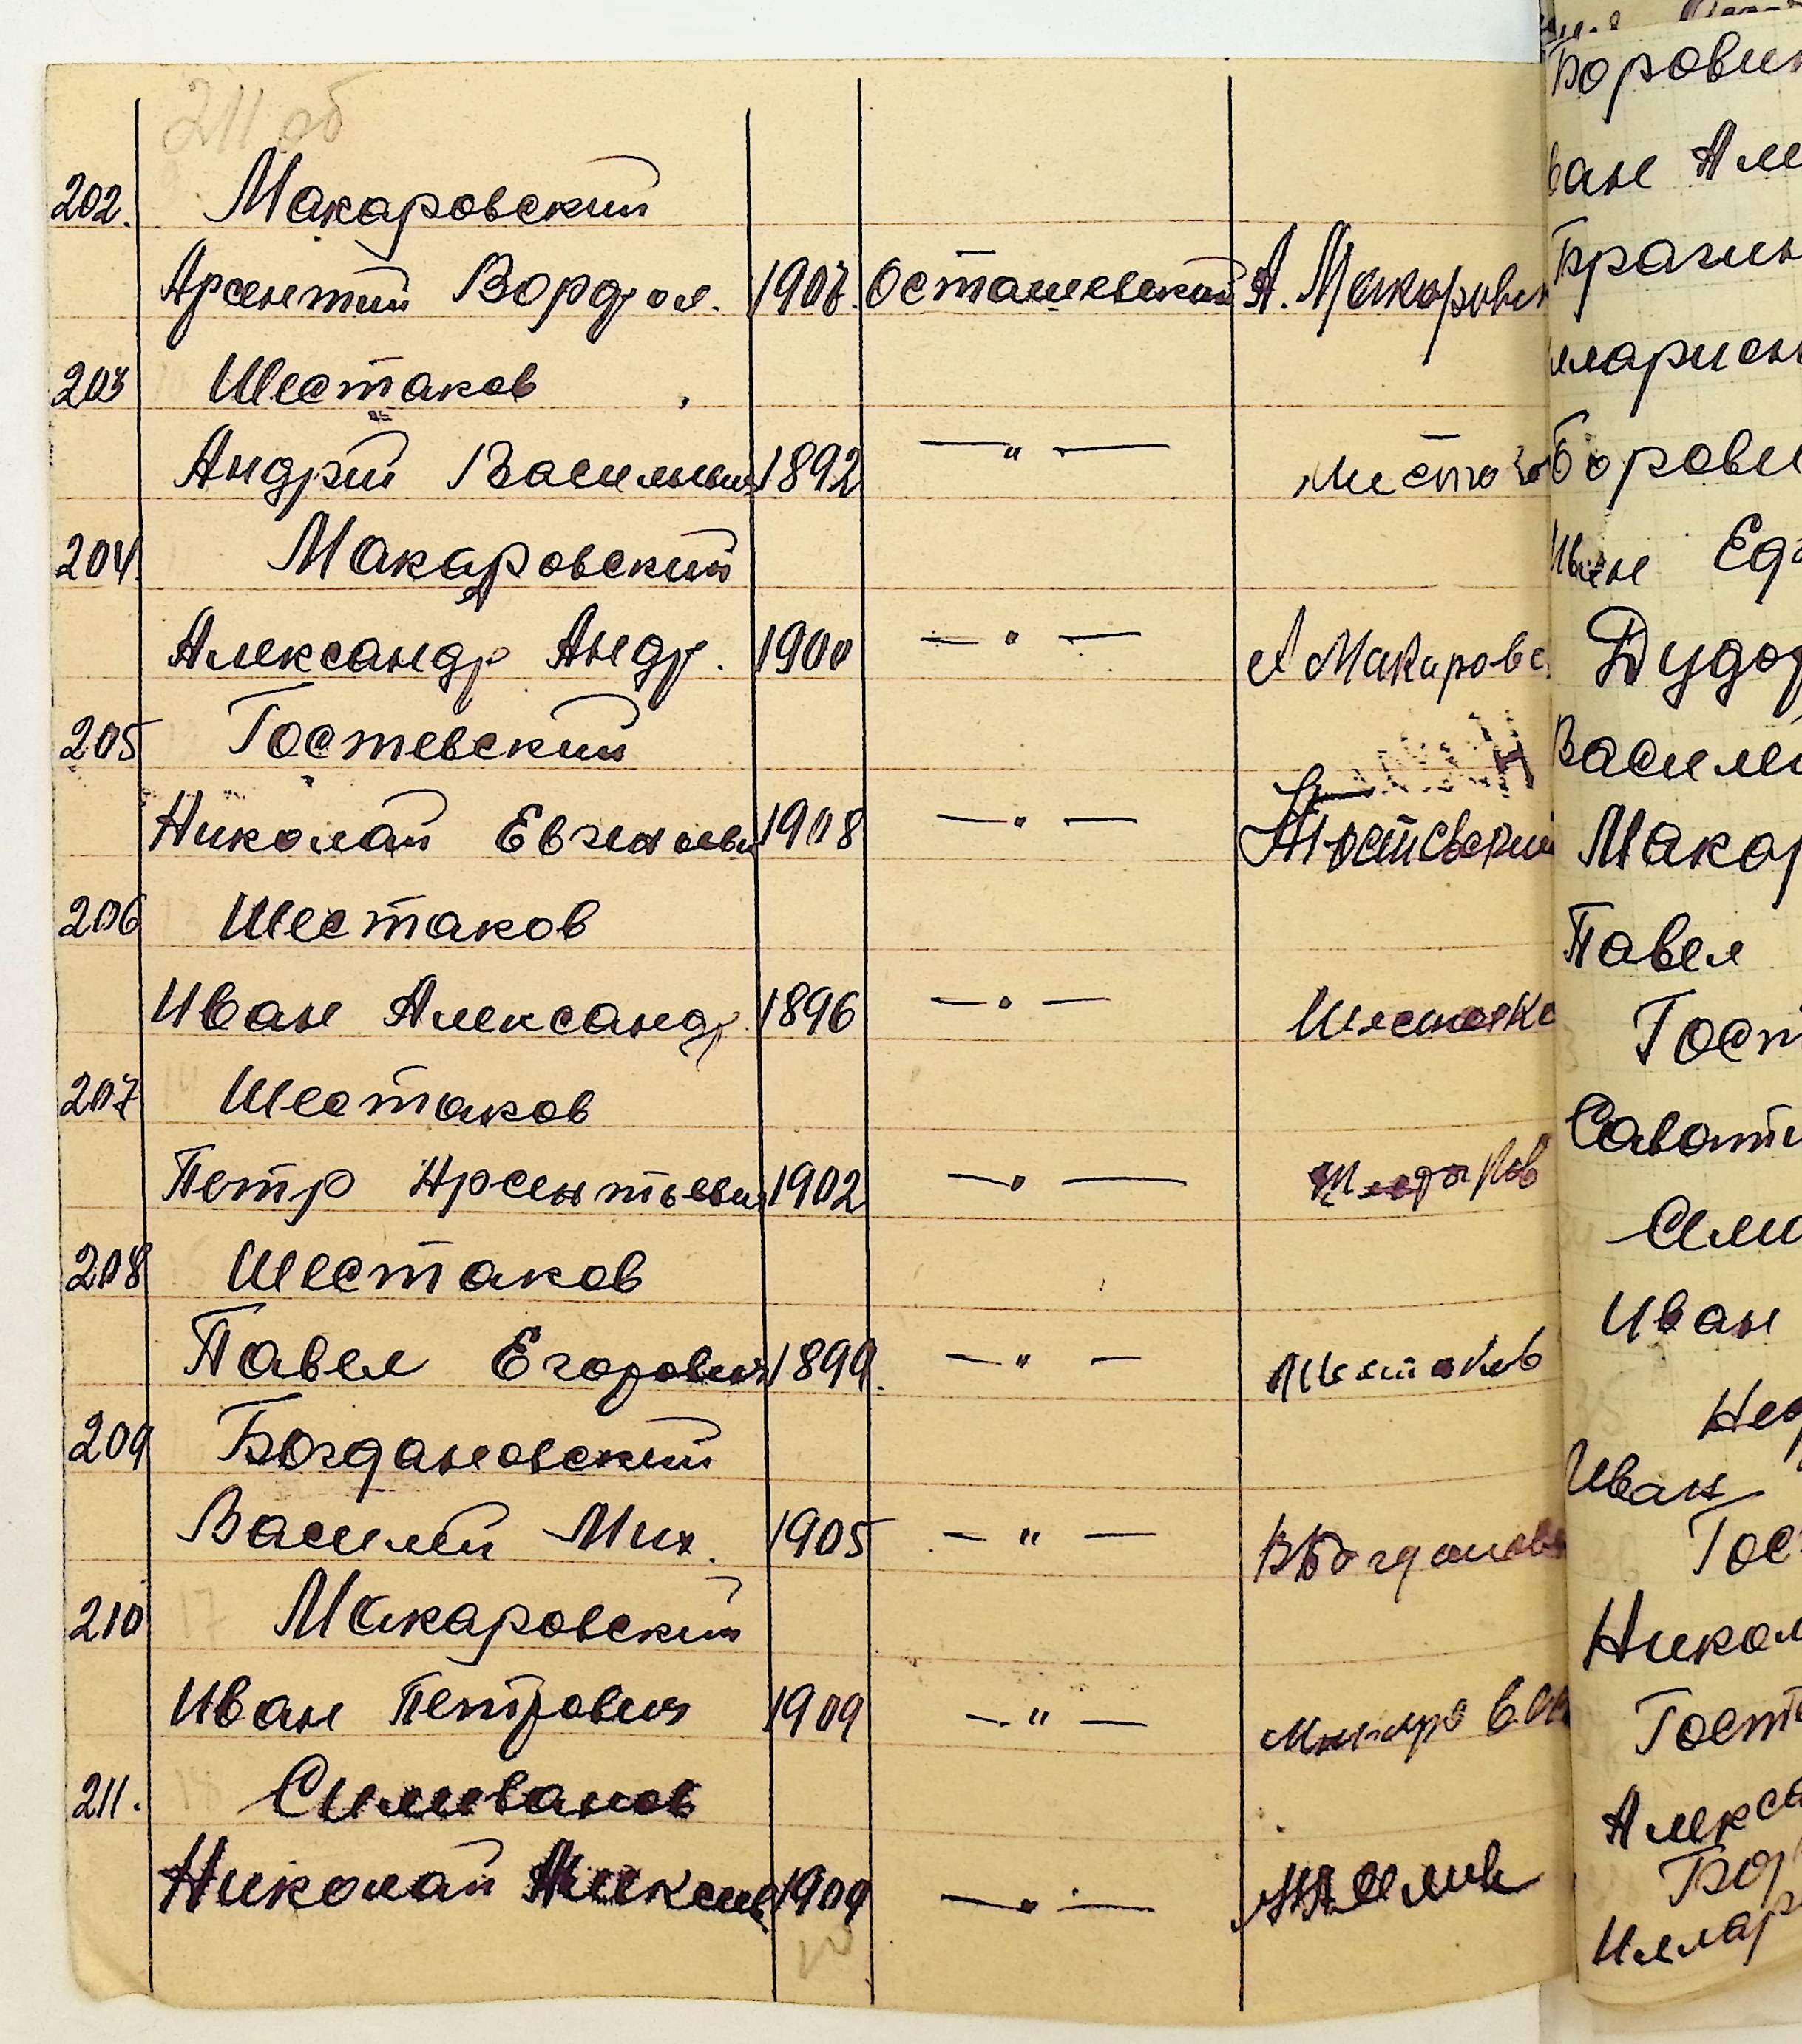 211 об
202. Макаровский
Арсентий Вард. ол. 1907. Осташевский А. Макаровск
203 Шестаков
Андрей Васильевич 1892 — " — Шестаков
204. Макаровский
Александр Андр. 1900 — " — А Макаровс
205 Гостевский
Николай Евгеньеви 1908 — " — Гостевский
206 Шестаков
Иван Александр. 1896 — " — Шестако
207 Шестаков
Петр Арсентьевич 1902 — " — Шестаков
208 Шестаков
Павел Егорович 1899. — " — Шестаков
209 Богдановский
Василий Мих. 1905 — " — В Богданов
210 Макаровский
Иван Петрович 1909 — " — Макаровск
211. Симиванов
Николай 1909 — " —
Борови
ван Але
Брагин
иларион
Борови
Иван Ег
Дудор
Васили
Макар
Павел
Гост
Савати
Сели
Иван
Иван
Гос
Никол
Госте
Алекса
Бор
Иллар